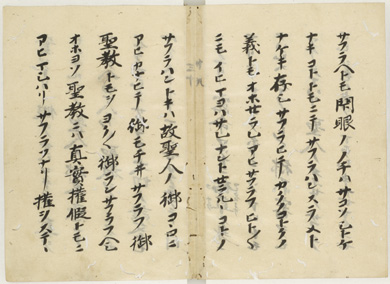 サフラヘトモ閉眼ノノチハサコソシトケ
ナキコトトモニテサフラハンスラメト
ナケキ存シサフラヒテカクノコトクノ
義トモオホセラレアヒサフラフヒト〱
ニモイヒマヨハサレナントセラルヽコトノ
サフラハントキハ故聖人ノ御コヽロニ
アヒカナヒテ御モチヰサフラフ御
聖教トモヲヨク〱御ランサフラフヘシ
オホヨソ聖教ニハ真實權假トモニ
アヒマシハリテサフラフナリ權ヲステヽ